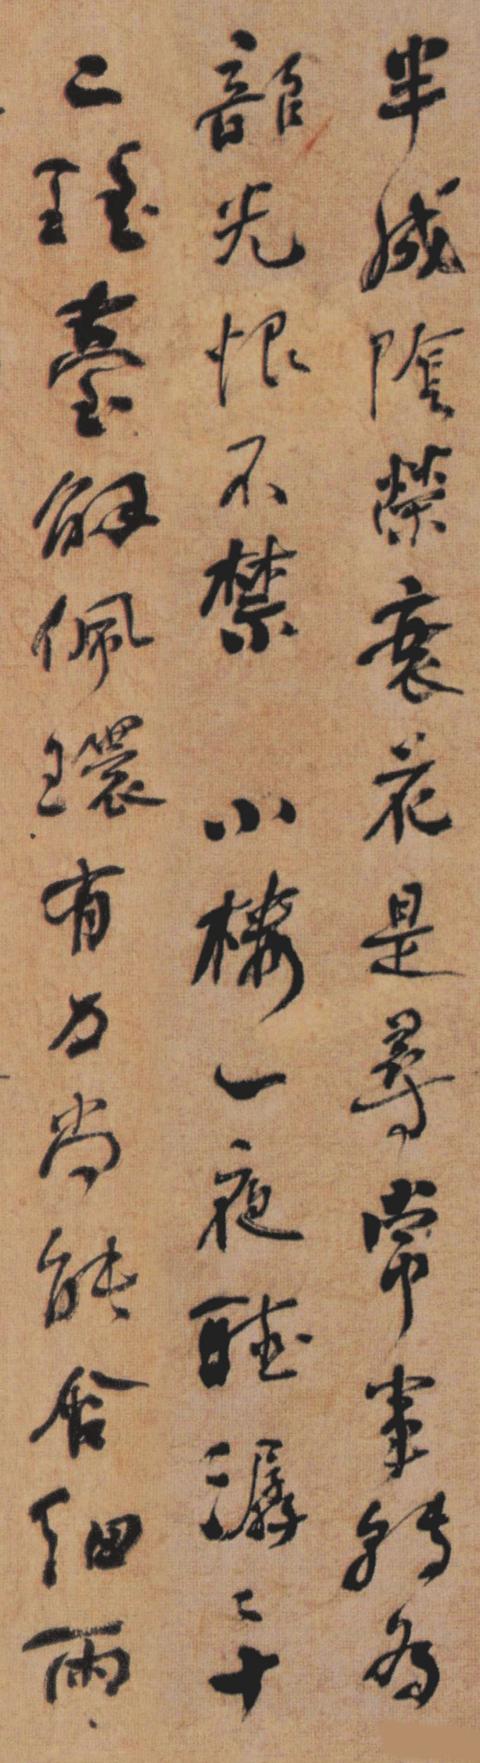 半成陰榮衰花是尋常事轉為
韶光恨不禁 小樓一夜聽潺潺十
二瑤臺解佩環有力尚能含細雨